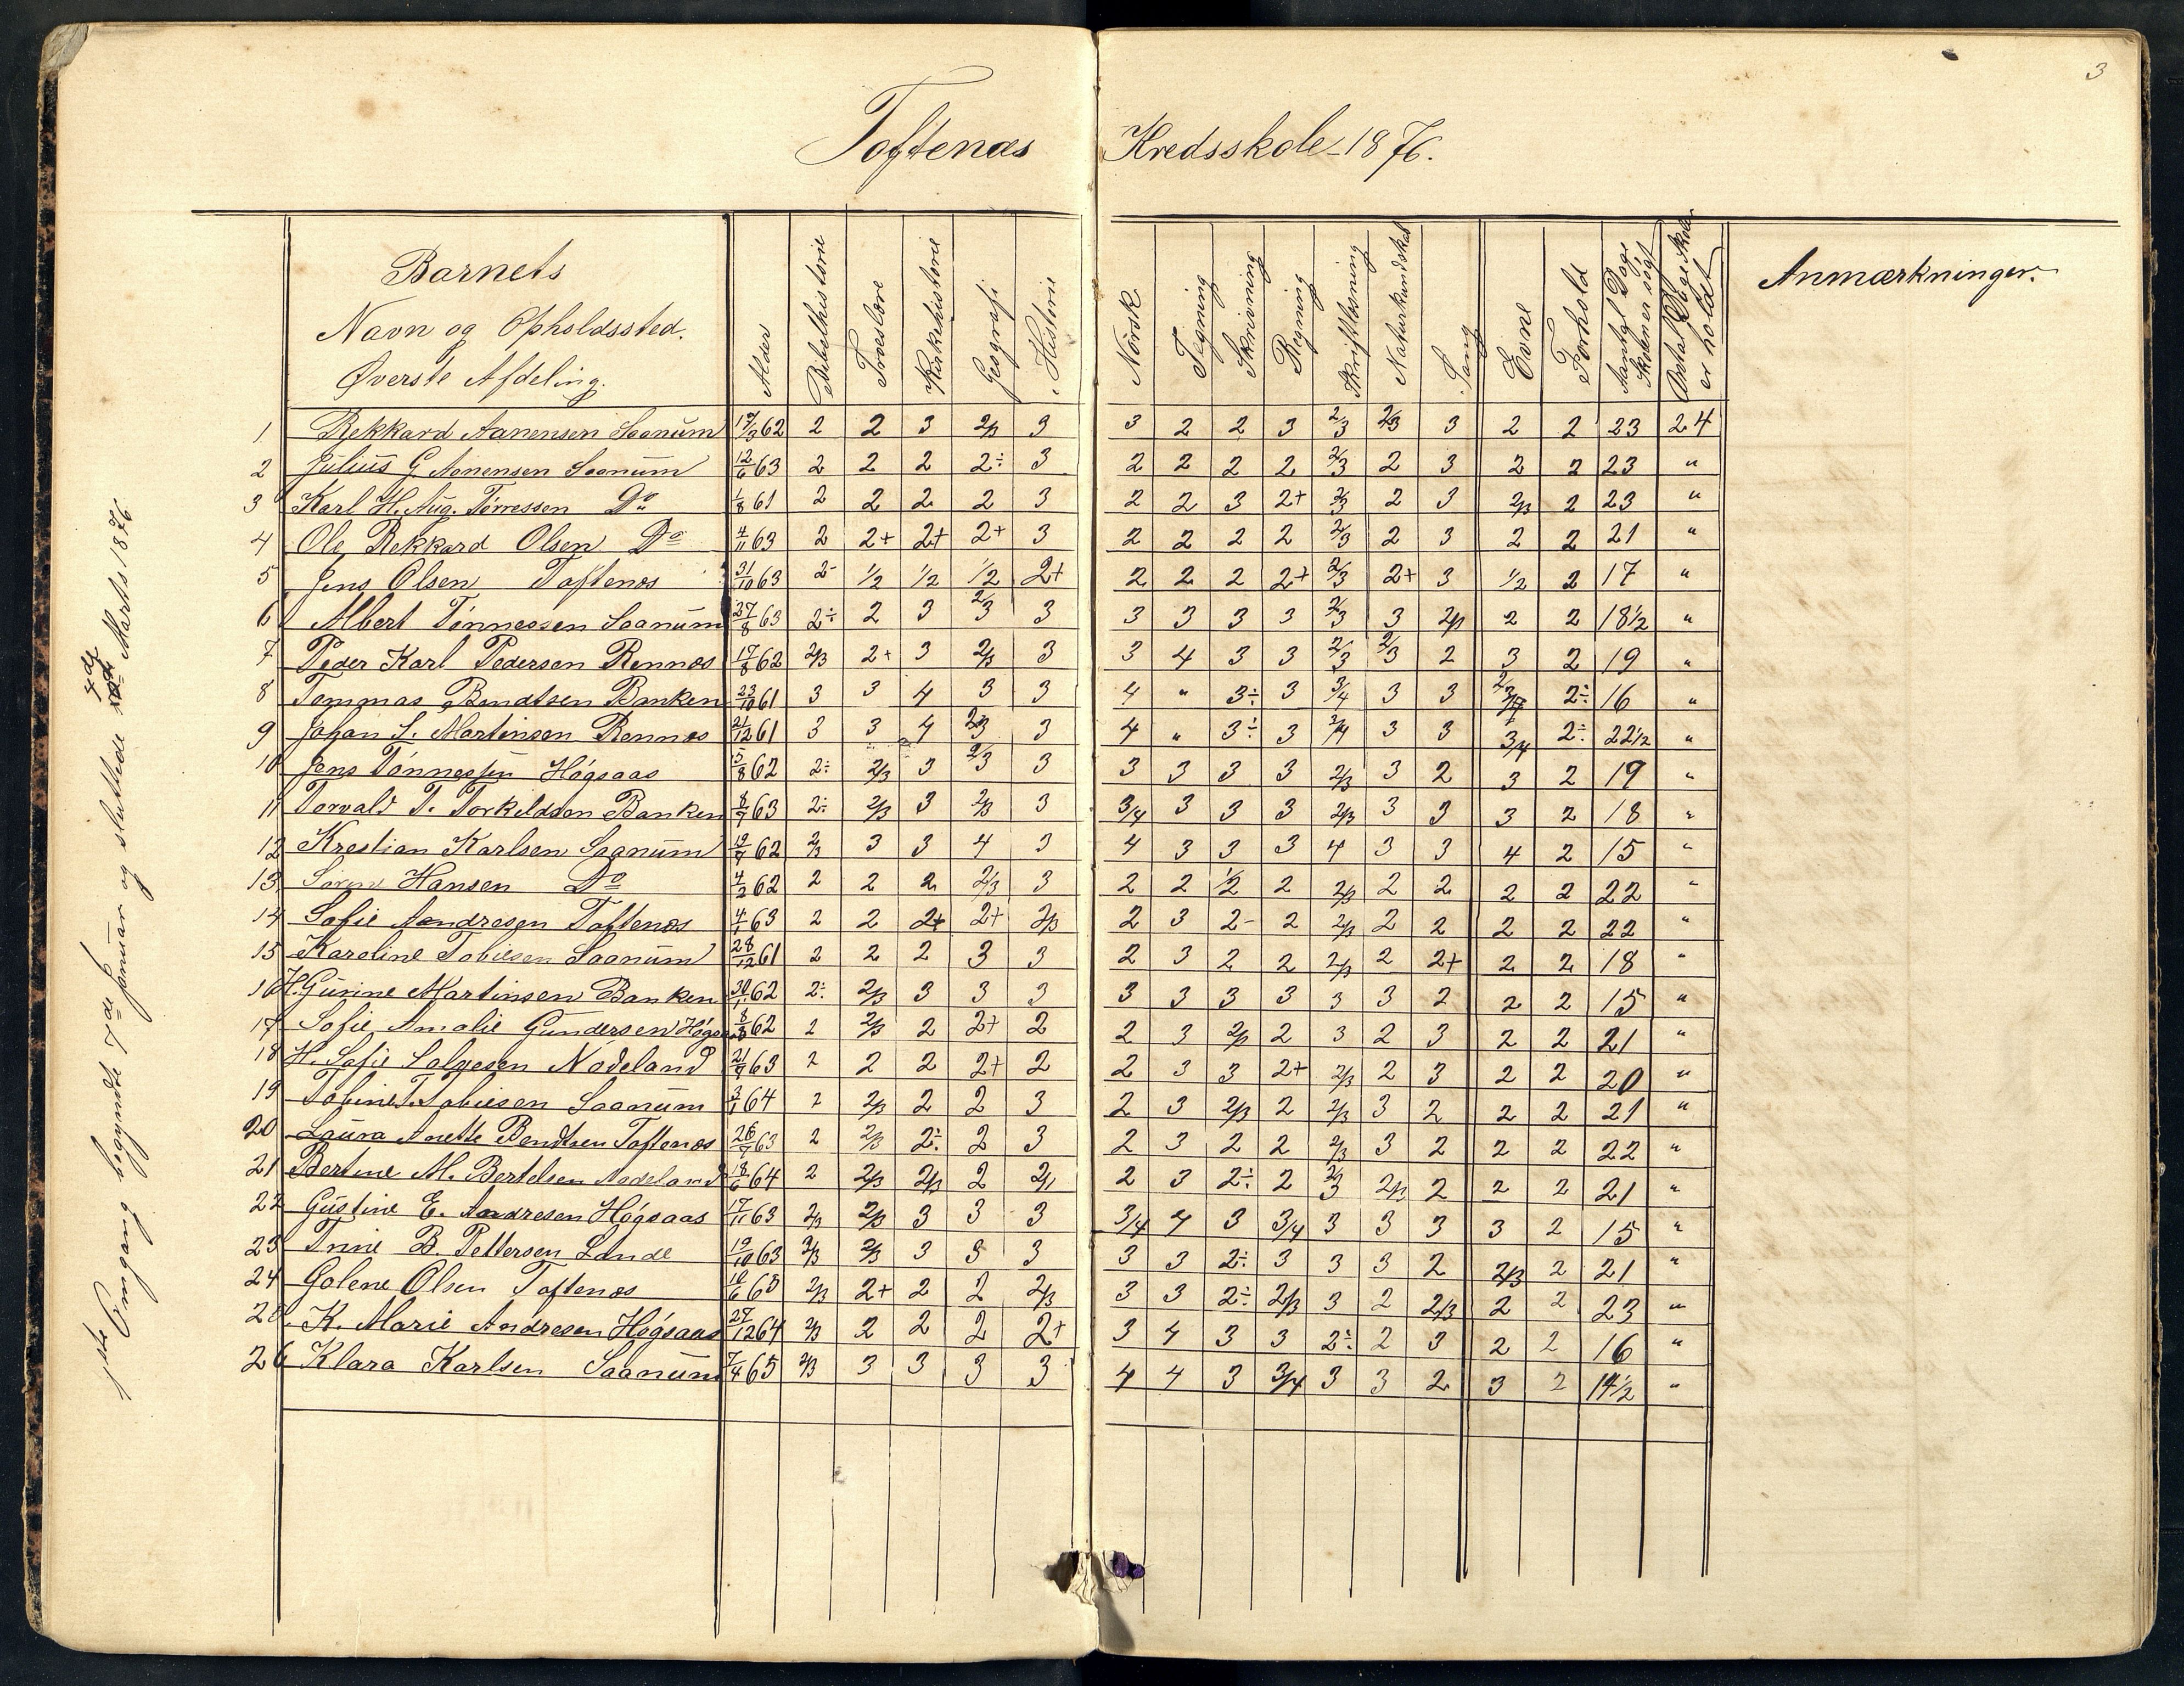 3
Toftenæs Kredsskole 1876.
Barnets
Navn og Opholdssted.
Øverste Afdeling.
Alder
Bibelhistorie
Troeslære
Kirkehistorie
Geografi
Historie
Norsk
Tegning
Skrivning
Regning
Skriftlæsning
Naturkundskab
Sang
Evne
Forhold
Aantal Dage Skolen er søgt
Antal Dage Skolen er holdt
Anmærkninger.
1 Rekkard Aanensen Saanum 17/3 62 2 2 3 2/3 3 3 2 2 3 2/3 2/3 3 2 2 23 24
2 Julius G Aanensen Saanum 12/6 63 2 2 2 2÷ 3 2 2 2 2 2/3 2 3 2 2 23 "
3 Karl H. Aug. Tørressen Do 1/8 61 2 2 2 2 3 2 2 3 2+ 2/3 2 3 2/3 2 23 "
4 Ole Rekkard Olsen Do 4/11 63 2 2+ 2+ 2+ 3 2 2 2 2 2/3 2 3 2 2 21 "
5 Jens Olsen Toftenæs 31/10 63 2- 1/2 1/2 1/2 2+ 2 2 2 2+ 2/3 2+ 3 1/2 2 17 "
6 Albert Tønnessen Saanum 27/8 63 2÷ 2 3 2/3 3 3 3 3 3 2/3 3 2/3 2 2 18 1/2 "
7 Peder Karl Pedersen Rennæs 17/8 62 2/3 2+ 3 2/3 3 3 4 3 3 2/3 2/3 2 3 2 19 "
8 Tommas Bendtsen Banken 23/10 61 3 3 4 3 3 4 " 3÷ 3 3/4 3 3 2÷ 16 "
9 Johan S. Martinsen Rennæs 21/12 61 3 3 4 2/3 3 4 " 3÷ 3 3/4 3 3 3/4 2÷ 22 1/2 "
10 Jens Tønnessen Høgsaas 5/8 62 2÷ 2/3 3 2/3 3 3 3 3 3 2/3 3 2 3 2 19 "
11 Torvald T. Torkildsen Banken 8/7 63 2÷ 2/3 3 2/3 3 3/4 3 3 3 2/3 3 3 3 2 18 "
12 Krestian Karlsen Saanum 19/7 62 2/3 3 3 4 3 4 3 3 3 4 3 3 4 2 15 "
13 Søren Hansen Do 4/2 62 2 2 2 2/3 3 2 2 1/2 2 2/3 2 2 2 2 22 "
14 Sofie Aandresen Toftenæs 4/1 63 2 2 2+ 2+ 2/3 2 3 2- 2 2/3 2 2 2 2 22 "
15 Karoline Tobiesen Saanum 28/12 61 2 2 2 3 3 2 3 2 2 2/3 2 2+ 2 2 18 "
16 H. Gurine Martinsen Banken 30/1 62 2÷ 2/3 3 3 3 3 3 3 3 3 3 2 2 2 15 "
17 Sofie Amalie Gundersen Høgsaas 8/8 62 2 2/3 2 2+ 2 2 3 2/3 2 3 2 3 2 2 21 "
18 H. Sofie Salvesen Nødeland 21/9 63 2 2 2 2+ 2 2 3 3 2+ 2/3 2 3 2 2 20 "
19 Tobine T. Tobiesen Saanum 2/1 64 2 2/3 2 2 3 2 3 2/3 2 2/3 3 2 2 2 21 "
20 Laura Anette Bendtsen Toftenæs 26/7 63 2 2/3 2÷ 2 3 2 3 2 2 2/3 3 2 2 2 22 "
21 Bertine M. Bertelsen Nødeland 18/6 64 2 2/3 2/3 2 2/1 2 3 2÷ 2 2/3 2/3 2 2 2 21 "
22 Gustine E. Aandresen Høgsaas 17/11 63 2/3 2/3 3 3 3 3/4 4 3 3/4 3 3 3 3 2 15 "
23 Trine B. Pettersen Lande 19/10 63 2/3 2/3 3 3 3 3 3 2÷ 3 3 3 2 2/3 2 21 "
24 Golene Olsen Toftenæs 10/6 63 2/3 2+ 2 2 2/3 3 3 2÷ 2/3 3 2 2/3 2 2 23 "
25 K. Marie Andresen Høgsaas 27/12 64 2/3 2 2 2 2+ 3 4 3 3 2÷ 2 3 2 2 16 "
26 Klara Karlsen Saanum 7/4 65 2/3 3 3 3 3 4 4 3 3/4 3 3 2 3 2 14 1/2 "
1ste Omgang begyndte 7de Januar og sluttede Marts 1876